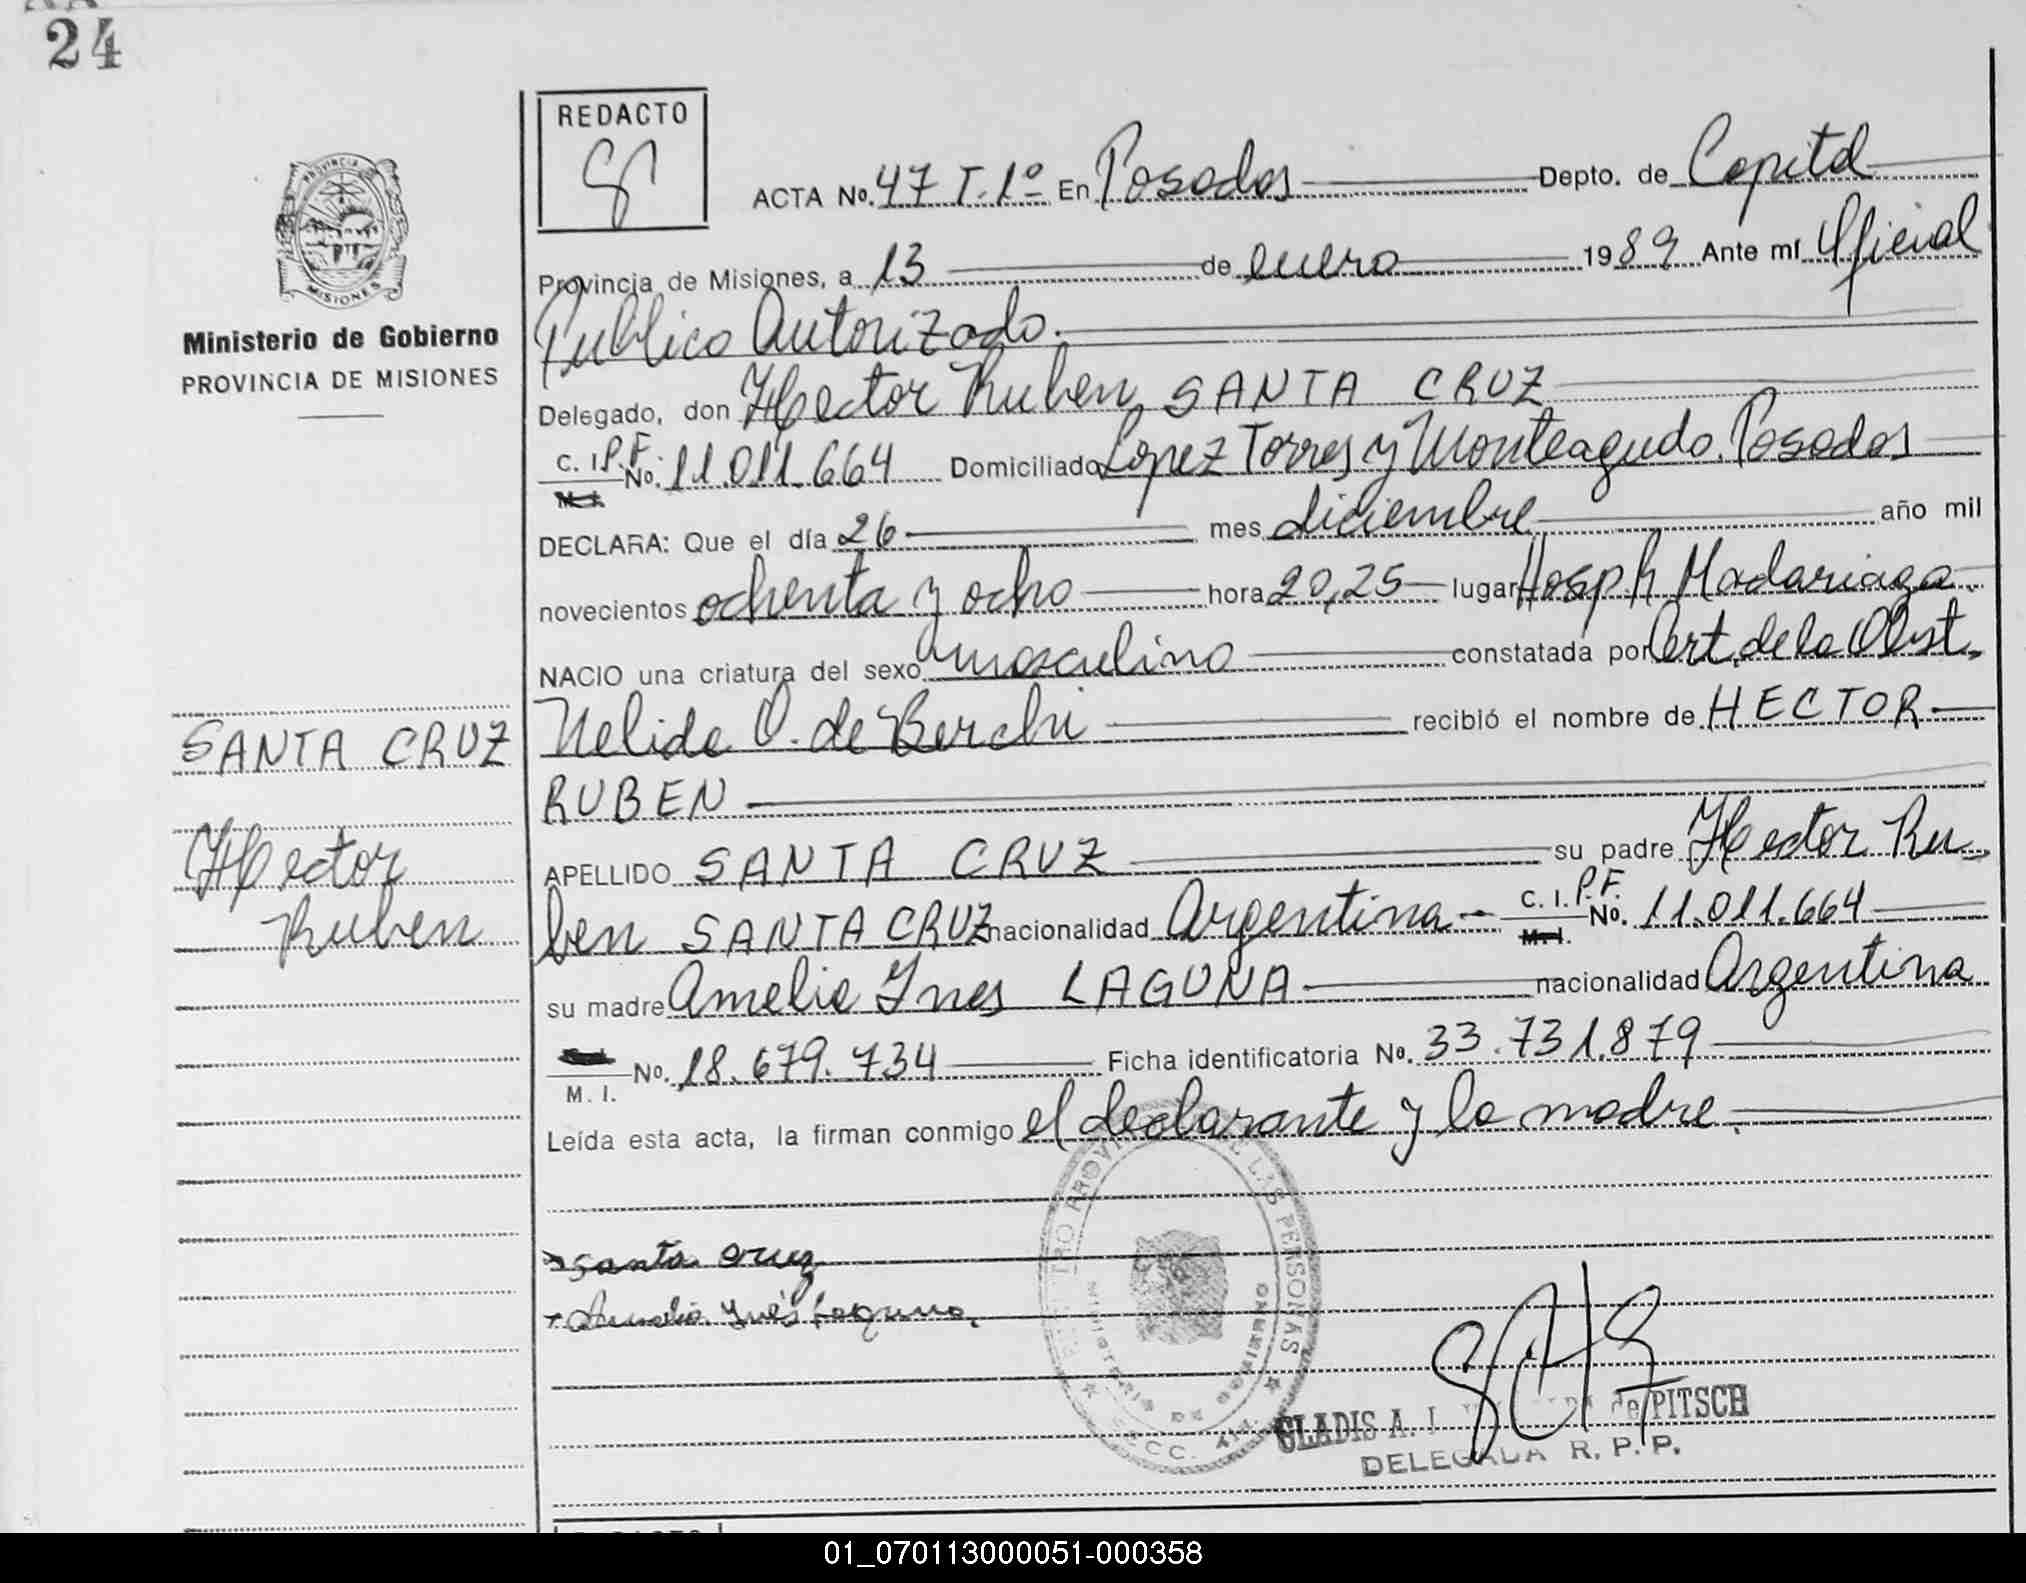 24
REDACTO
PROVINCIA
MISIONES
Ministerio de Gobierno
PROVINCIA DE MISIONES
ACTA No. 47 T. 1º En Posadas Depto. de Capital
Provincia de Misiones, a 13 de enero 1989 Ante mí Oficial
Publico Autorizado.
Delegado, don Hector Ruben SANTA CRUZ
C. I. P.F. No. 11.011.664 Domiciliado Lopez Torres y Monteagudo. Posadas
M. I.
DECLARA: Que el día 26 mes diciembre año mil
novecientos ochenta y ocho hora 20,25 lugar Hosp R Madariaga.
NACIO una criatura del sexo masculino constatada por Cert. de la Obst.
Nelida O. de Berchi recibió el nombre de HECTOR
RUBEN
APELLIDO SANTA CRUZ su padre Hector Ru-
ben SANTA CRUZ nacionalidad Argentina C. I. P.F. No. 11.011.664
M. I.
su madre Amelia Ynes LAGUNA nacionalidad Argentina
No. 18.679.734 Ficha identificatoria No. 33.731.879
M. I.
Leída esta acta, la firman conmigo el declarante y la madre.
SANTA CRUZ
Hector
Ruben
Santa Cruz
Amelia Inés Laguna
DE LAS PERSONAS
MINISTERIO DE GOBIERNO
GLADIS A. de PITSCH
DELEGADA R. P. P.
01_070113000051-000358